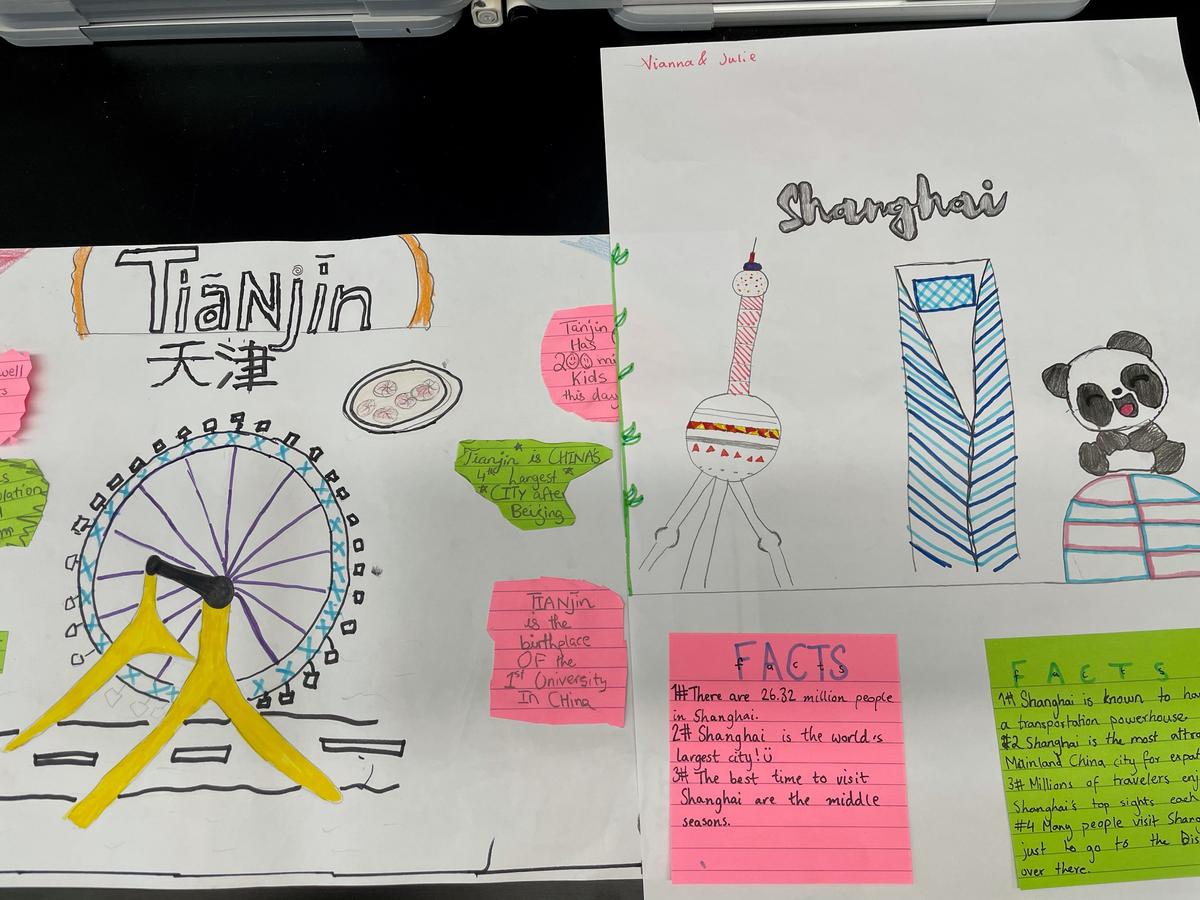 Vianna & Julie
Shanghai
Tiānjīn
天津
well
Tianjin
Has
200 mi
Kids
this day
Tianjin is CHINA's
4th Largest
CITY after
Beijing
TIANjin
is the
birthplace
OF the
1st University
In China
FACTS
facts
1# There are 26.32 million people
in Shanghai.
2# Shanghai is the world's
largest city!
3# The best time to visit
Shanghai are the middle
seasons.
FACTS
1# Shanghai is known to ha
a transportation powerhouse
#2 Shanghai is the most attra
Mainland China city for expat
3# Millions of travelers enj
Shanghai's top sights each
#4 Many people visit Shang
just to go to the Dis
over there.